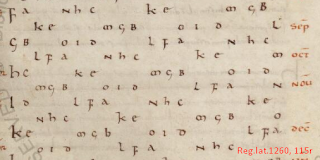 f a n h c k e m g b
k e m g b o i d l sep
g b o i d l f a n h c
l f a n h c k e m oct
h c k e m g b o i d
m g b o i d l f a n nou
l d l f a n h c k e
n h c k e m g b o
k e m g b o i d l f a dec
o i d l f a n h c
Reg.lat.1260, 115r